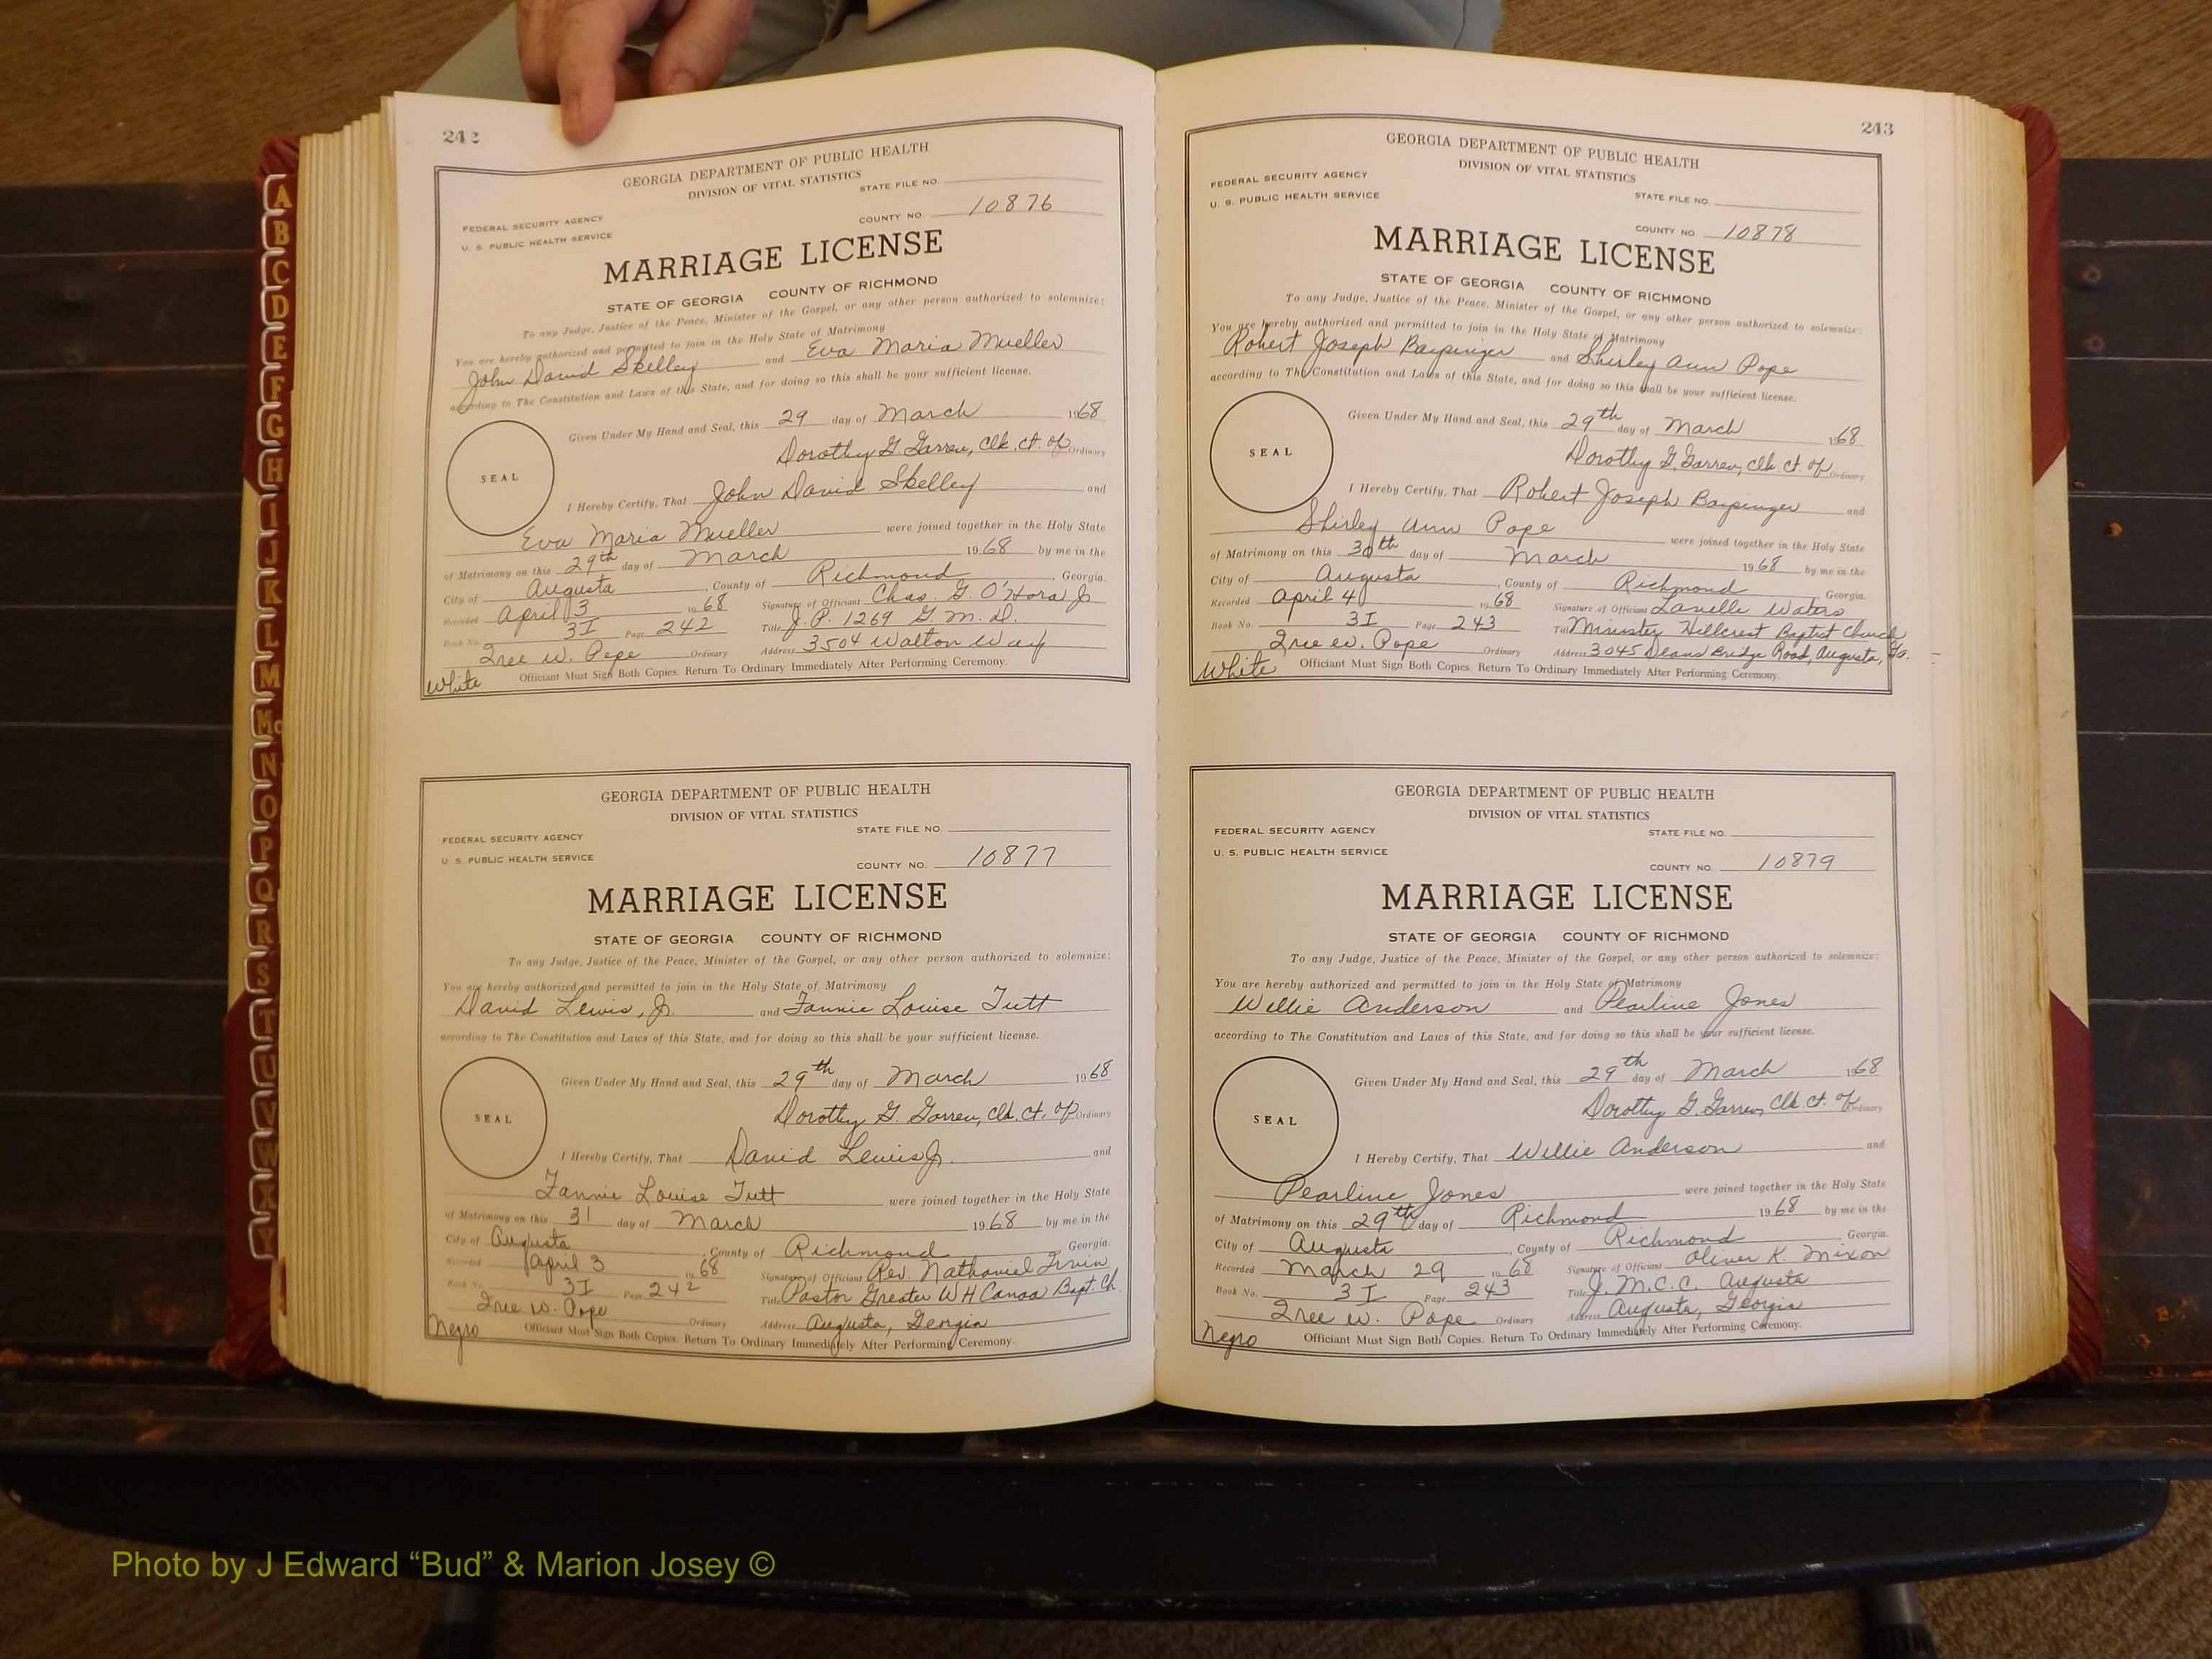 242
GEORGIA DEPARTMENT OF PUBLIC HEALTH
DIVISION OF VITAL STATISTICS
STATE FILE NO.
FEDERAL SECURITY AGENCY
COUNTY NO. 10876
U. S. PUBLIC HEALTH SERVICE
MARRIAGE LICENSE
STATE OF GEORGIA COUNTY OF RICHMOND
To any Judge, Justice of the Peace, Minister of the Gospel, or any other person authorized to solemnize:
You are hereby authorized and permitted to join in the Holy State of Matrimony
John David Skelley and Eva Maria Mueller
according to The Constitution and Laws of this State, and for doing so this shall be your sufficient license.
Given Under My Hand and Seal, this 29 day of March 1968
Dorothy G. Garren, Clk. Ct. of Ordinary
SEAL
I Hereby Certify, That John David Skelley and
Eva Maria Mueller were joined together in the Holy State
of Matrimony on this 29th day of March 1968 by me in the
City of Augusta, County of Richmond, Georgia.
Recorded April 3 1968 Signature of Officiant Chas. G. O'Hara Jr
Book No. 3I Page 242 Title J. P. 1269 G. M. D.
Iree W. Pope Ordinary Address 3504 Walton Way
White Officiant Must Sign Both Copies. Return To Ordinary Immediately After Performing Ceremony.
GEORGIA DEPARTMENT OF PUBLIC HEALTH
DIVISION OF VITAL STATISTICS
STATE FILE NO.
FEDERAL SECURITY AGENCY
U. S. PUBLIC HEALTH SERVICE
COUNTY NO. 10877
MARRIAGE LICENSE
STATE OF GEORGIA COUNTY OF RICHMOND
To any Judge, Justice of the Peace, Minister of the Gospel, or any other person authorized to solemnize:
You are hereby authorized and permitted to join in the Holy State of Matrimony
David Lewis, Jr. and Fannie Louise Tutt
according to The Constitution and Laws of this State, and for doing so this shall be your sufficient license.
Given Under My Hand and Seal, this 29th day of March 1968
Dorothy G. Garren, Clk. Ct. of Ordinary
SEAL
I Hereby Certify, That David Lewis Jr. and
Fannie Louise Tutt were joined together in the Holy State
of Matrimony on this 31 day of March 1968 by me in the
City of Augusta, County of Richmond Georgia.
Recorded April 3 1968 Signature of Officiant Rev. Nathaniel Irvin
Book No. 3I Page 242 Title Pastor Greater W H Canaa Bapt. Ch
Iree W. Pope Ordinary Address Augusta, Georgia
Negro Officiant Must Sign Both Copies. Return To Ordinary Immediately After Performing Ceremony.
243
GEORGIA DEPARTMENT OF PUBLIC HEALTH
DIVISION OF VITAL STATISTICS
FEDERAL SECURITY AGENCY
U. S. PUBLIC HEALTH SERVICE
STATE FILE NO.
COUNTY NO. 10878
MARRIAGE LICENSE
STATE OF GEORGIA COUNTY OF RICHMOND
To any Judge, Justice of the Peace, Minister of the Gospel, or any other person authorized to solemnize:
You are hereby authorized and permitted to join in the Holy State of Matrimony
Robert Joseph and Shirley Ann Pope
according to The Constitution and Laws of this State, and for doing so this shall be your sufficient license.
Given Under My Hand and Seal, this 29th day of March 1968
Dorothy G. Garren, Clk. Ct. of Ordinary
SEAL
I Hereby Certify, That Robert Joseph and
Shirley Ann Pope were joined together in the Holy State
of Matrimony on this 30th day of March 1968 by me in the
City of Augusta, County of Richmond, Georgia.
Recorded April 4 1968 Signature of Officiant Lanelle Waters
Book No. 3I Page 243 Title Minister Hillcrest Baptist Church
Iree W. Pope Ordinary Address 3045 Deans Bridge Road, Augusta, Ga.
White Officiant Must Sign Both Copies. Return To Ordinary Immediately After Performing Ceremony.
GEORGIA DEPARTMENT OF PUBLIC HEALTH
DIVISION OF VITAL STATISTICS
FEDERAL SECURITY AGENCY
STATE FILE NO.
U. S. PUBLIC HEALTH SERVICE
COUNTY NO. 10879
MARRIAGE LICENSE
STATE OF GEORGIA COUNTY OF RICHMOND
To any Judge, Justice of the Peace, Minister of the Gospel, or any other person authorized to solemnize:
You are hereby authorized and permitted to join in the Holy State of Matrimony
Willie Anderson and Pearline Jones
according to The Constitution and Laws of this State, and for doing so this shall be your sufficient license.
Given Under My Hand and Seal, this 29th day of March 1968
Dorothy G. Garren, Clk. Ct. of Ordinary
SEAL
I Hereby Certify, That Willie Anderson and
Pearline Jones were joined together in the Holy State
of Matrimony on this 29th day of Richmond 1968 by me in the
City of Augusta, County of Richmond Georgia.
Recorded March 29 1968 Signature of Officiant Oliver K. Mixon
Book No. 3I Page 243 Title J. M.C.C. Augusta
Iree W. Pope Ordinary Address Augusta, Georgia
Negro Officiant Must Sign Both Copies. Return To Ordinary Immediately After Performing Ceremony.
A
B
C
D
E
F
G
H
I
J
K
L
M
Mc
N
O
P
Q
R
S
T
U
V
W
X
Y
Photo by J Edward “Bud” & Marion Josey ©